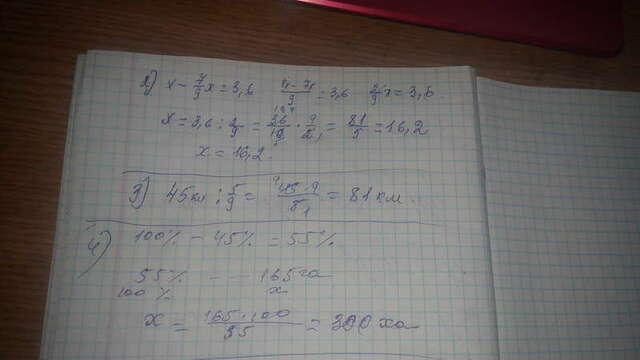 2) x - 7/9 x = 3,6   9x - 7x / 9 = 3,6   2/9 x = 3,6.
x = 3,6 : 2/9 = 36/10 · 9/2 = 81/5 = 16,2
x = 16,2.
3) 45км : 5/9 = 45·9/5 = 81км.
4) 100% - 45% = 55%
55% - - 165га
100% x
x = 165·100/55 = 300 ха